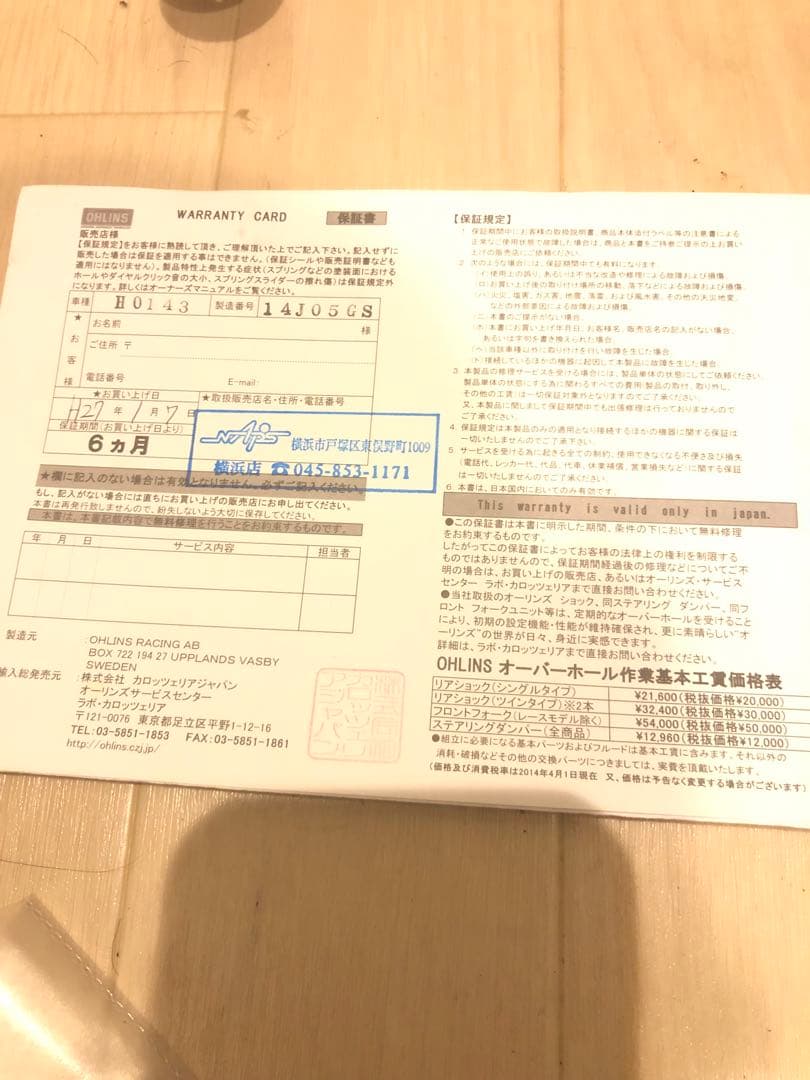 OHLINS
WARRANTY CARD
保証書
販売店様
【保証規定】をお客様に熟読して頂き、ご理解頂いた上でご記入下さい。記入せずに
販売した場合は保証を適用する事はできません。(保証シールや販売証明書なども
適用にはなりません)。製品特性上発生する症状(スプリングなどの塗装面における
ホールやダイヤルクリック音の大小、スプリングスライダーの擦れ傷)は保証規定外
になります。詳しくはオーナーズマニュアルをご覧ください。
車種 H0143 製造番号 14J05GS
★お客様
お名前 様
ご住所 〒
電話番号 E-mail:
★お買い上げ日 ★取扱販売店名・住所・電話番号
H27 年 1 月 7 日
保証期間(お買い上げ日より)
6ヵ月
NAPS 横浜市戸塚区東俣野町1009
横浜店 ☎045-853-1171
★欄に記入のない場合は有効となりません。必ずご記入ください。
もし、記入がない場合には直ちにお買い上げの販売店にお申し出てください。
本書は再発行致しませんので、紛失しないよう大切に保存してください。
本書は、本書記載内容で無料修理を行うことをお約束するものです。
年 月 日 サービス内容 担当者
製造元 :OHLINS RACING AB
BOX 722 194 27 UPPLANDS VASBY
SWEDEN
輸入総発売元 :株式会社 カロッツェリアジャパン
オーリンズサービスセンター
ラボ・カロッツェリア
〒121-0076 東京都足立区平野1-12-16
TEL:03-5851-1853 FAX:03-5851-1861
http://ohlins.czj.jp/
【保証規定】
1. 保証期間中にお客様の取扱説明書、商品本体添付ラベル等の注意書による
正常なご使用状態で故障した場合は、商品と本書をご持参ご提示の上お買い
上げの販売店にご依頼ください。
2. 次のような場合には、保証期間中でも有料になります。
(イ)使用上の誤り、あるいは不当な改造や修理による故障および損傷。
(ロ)お買い上げ後の取り付け場所の移動、落下などによる故障および損傷。
(ハ)火災、塩害、ガス害、地震、落雷、および風水害、その他の天災地変、
などの外部要因による故障および損傷。
(ニ)本書のご提示がない場合。
(ホ)本書にお買い上げ年月日、お客様名、販売店名の記入がない場合、
あるいは字句を書き換えられた場合。
(ヘ)当該車種以外に取り付けを行い故障を生じた場合。
(ト)接続しているほかの機器に起因して本製品に故障を生じた場合。
3. 本製品の修理サービスを受ける場合には、製品単体の状態にしてご依頼ください。
製品単体の状態にする為に関わるすべての費用(製品の取付、取り外し、
その他の工賃)は一切保証対象外となりますのでご了承ください。
又、本製品に関しまして保証期間中でも出張修理は行っておりませんので
ご了承ください。
4. 保証規定は本製品のみの適用となり接続するほかの機器に関する保証は
一切いたしませんのでご了承下さい。
5. サービスを受ける為に起きる全ての制約、使用できなくなる不便さ及び損失
(電話代、レッカー代、代品、代車、休業補償、営業損失など)に関する保証
は一切いたしませんのでご了承ください。
6. 本書は、日本国内においてのみ有効です。
This warranty is valid only in japan.
●この保証書は本書に明示した期間、条件の下において無料修理
をお約束するものです。
したがってこの保証書によってお客様の法律上の権利を制限する
ものではありませんので、保証期間経過後の修理などについてご不
明の場合は、お買い上げの販売店、あるいはオーリンズ・サービス
センター ラボ・カロッツェリアまで直接お問い合わせください。
●当社取扱のオーリンズ ショック、同ステアリング ダンパー、同フ
ロント フォークユニット等は、定期的なオーバーホールを受けること
により、初期の設定機能・性能が維持確保され、更に素晴らしい“オ
ーリンズ”の世界が日々、身近に実感できます。
詳細は、ラボ・カロッツェリアまで直接お問い合わせください。
OHLINS オーバーホール作業基本工賃価格表
リアショック(シングルタイプ) ¥21,600(税抜価格¥20,000)
リアショック(ツインタイプ)※2本 ¥32,400(税抜価格¥30,000)
フロントフォーク(レースモデル除く) ¥54,000(税抜価格¥50,000)
ステアリングダンパー(全商品) ¥12,960(税抜価格¥12,000)
●組立に必要になる基本パーツおよびフルードは基本工賃に含みます。それ以外の
消耗・破損などその他の交換パーツにつきましては、実費を頂戴いたします。
(価格及び消費税率は2014年4月1日現在 又、価格は予告なく変更する場合がございます)